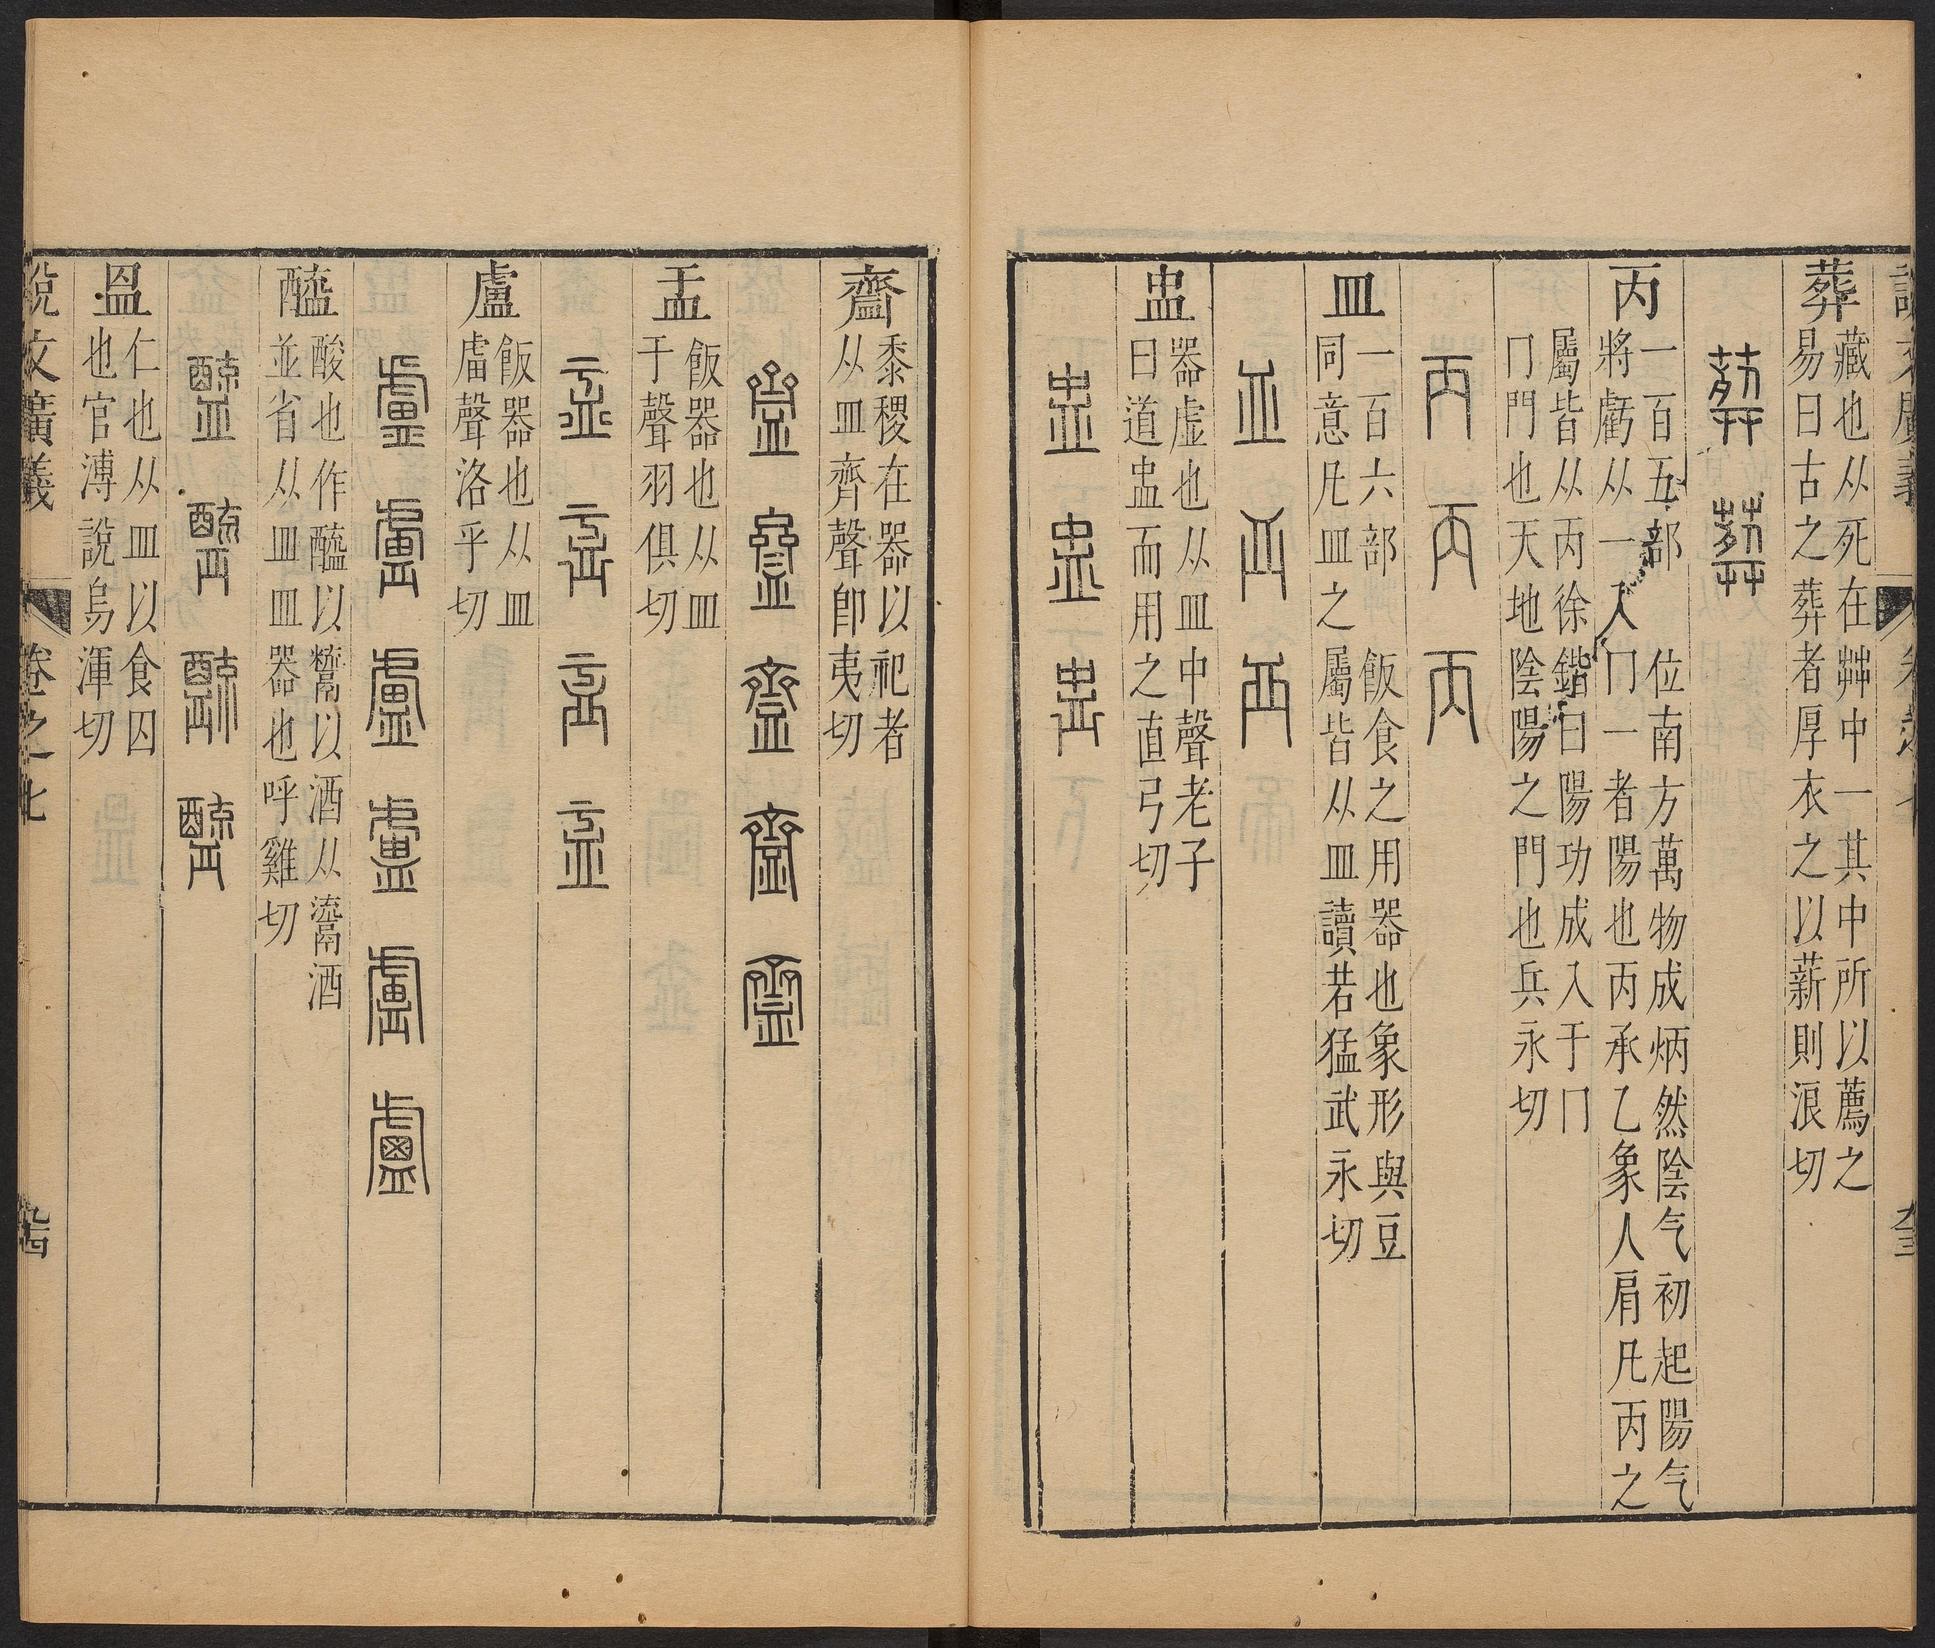 葬 藏也从死在茻中一其中所以薦之
易曰古之葬者厚衣之以薪則浪切
丙 一百五部 位南方萬物成炳然陰气初起陽气
將虧从一入冂一者陽也丙承乙象人肩凡丙之
屬皆从丙徐鍇曰陽功成入于冂
冂門也天地陰陽之門也兵永切
丙 丙 丙
皿 一百六部 飯食之用器也象形與豆
同意凡皿之屬皆从皿讀若猛武永切
皿 皿 皿
盅 器虛也从皿中聲老子
曰道盅而用之直弓切
盅 盅 盅
齍 黍稷在器以祀者
从皿齊聲卽夷切
齍 齍 齍 齍 齍
盂 飯器也从皿
于聲羽俱切
盂 盂 盂 盂
盧 飯器也从皿
䖒聲洛乎切
盧 盧 盧 盧 盧 盧
醯 酸也作醯以鬻以酒从鬻酒
並省从皿皿器也呼雞切
醯 醯 醯 醯
昷 仁也从皿以食囚
也官溥說烏渾切
說文廣義 卷之七